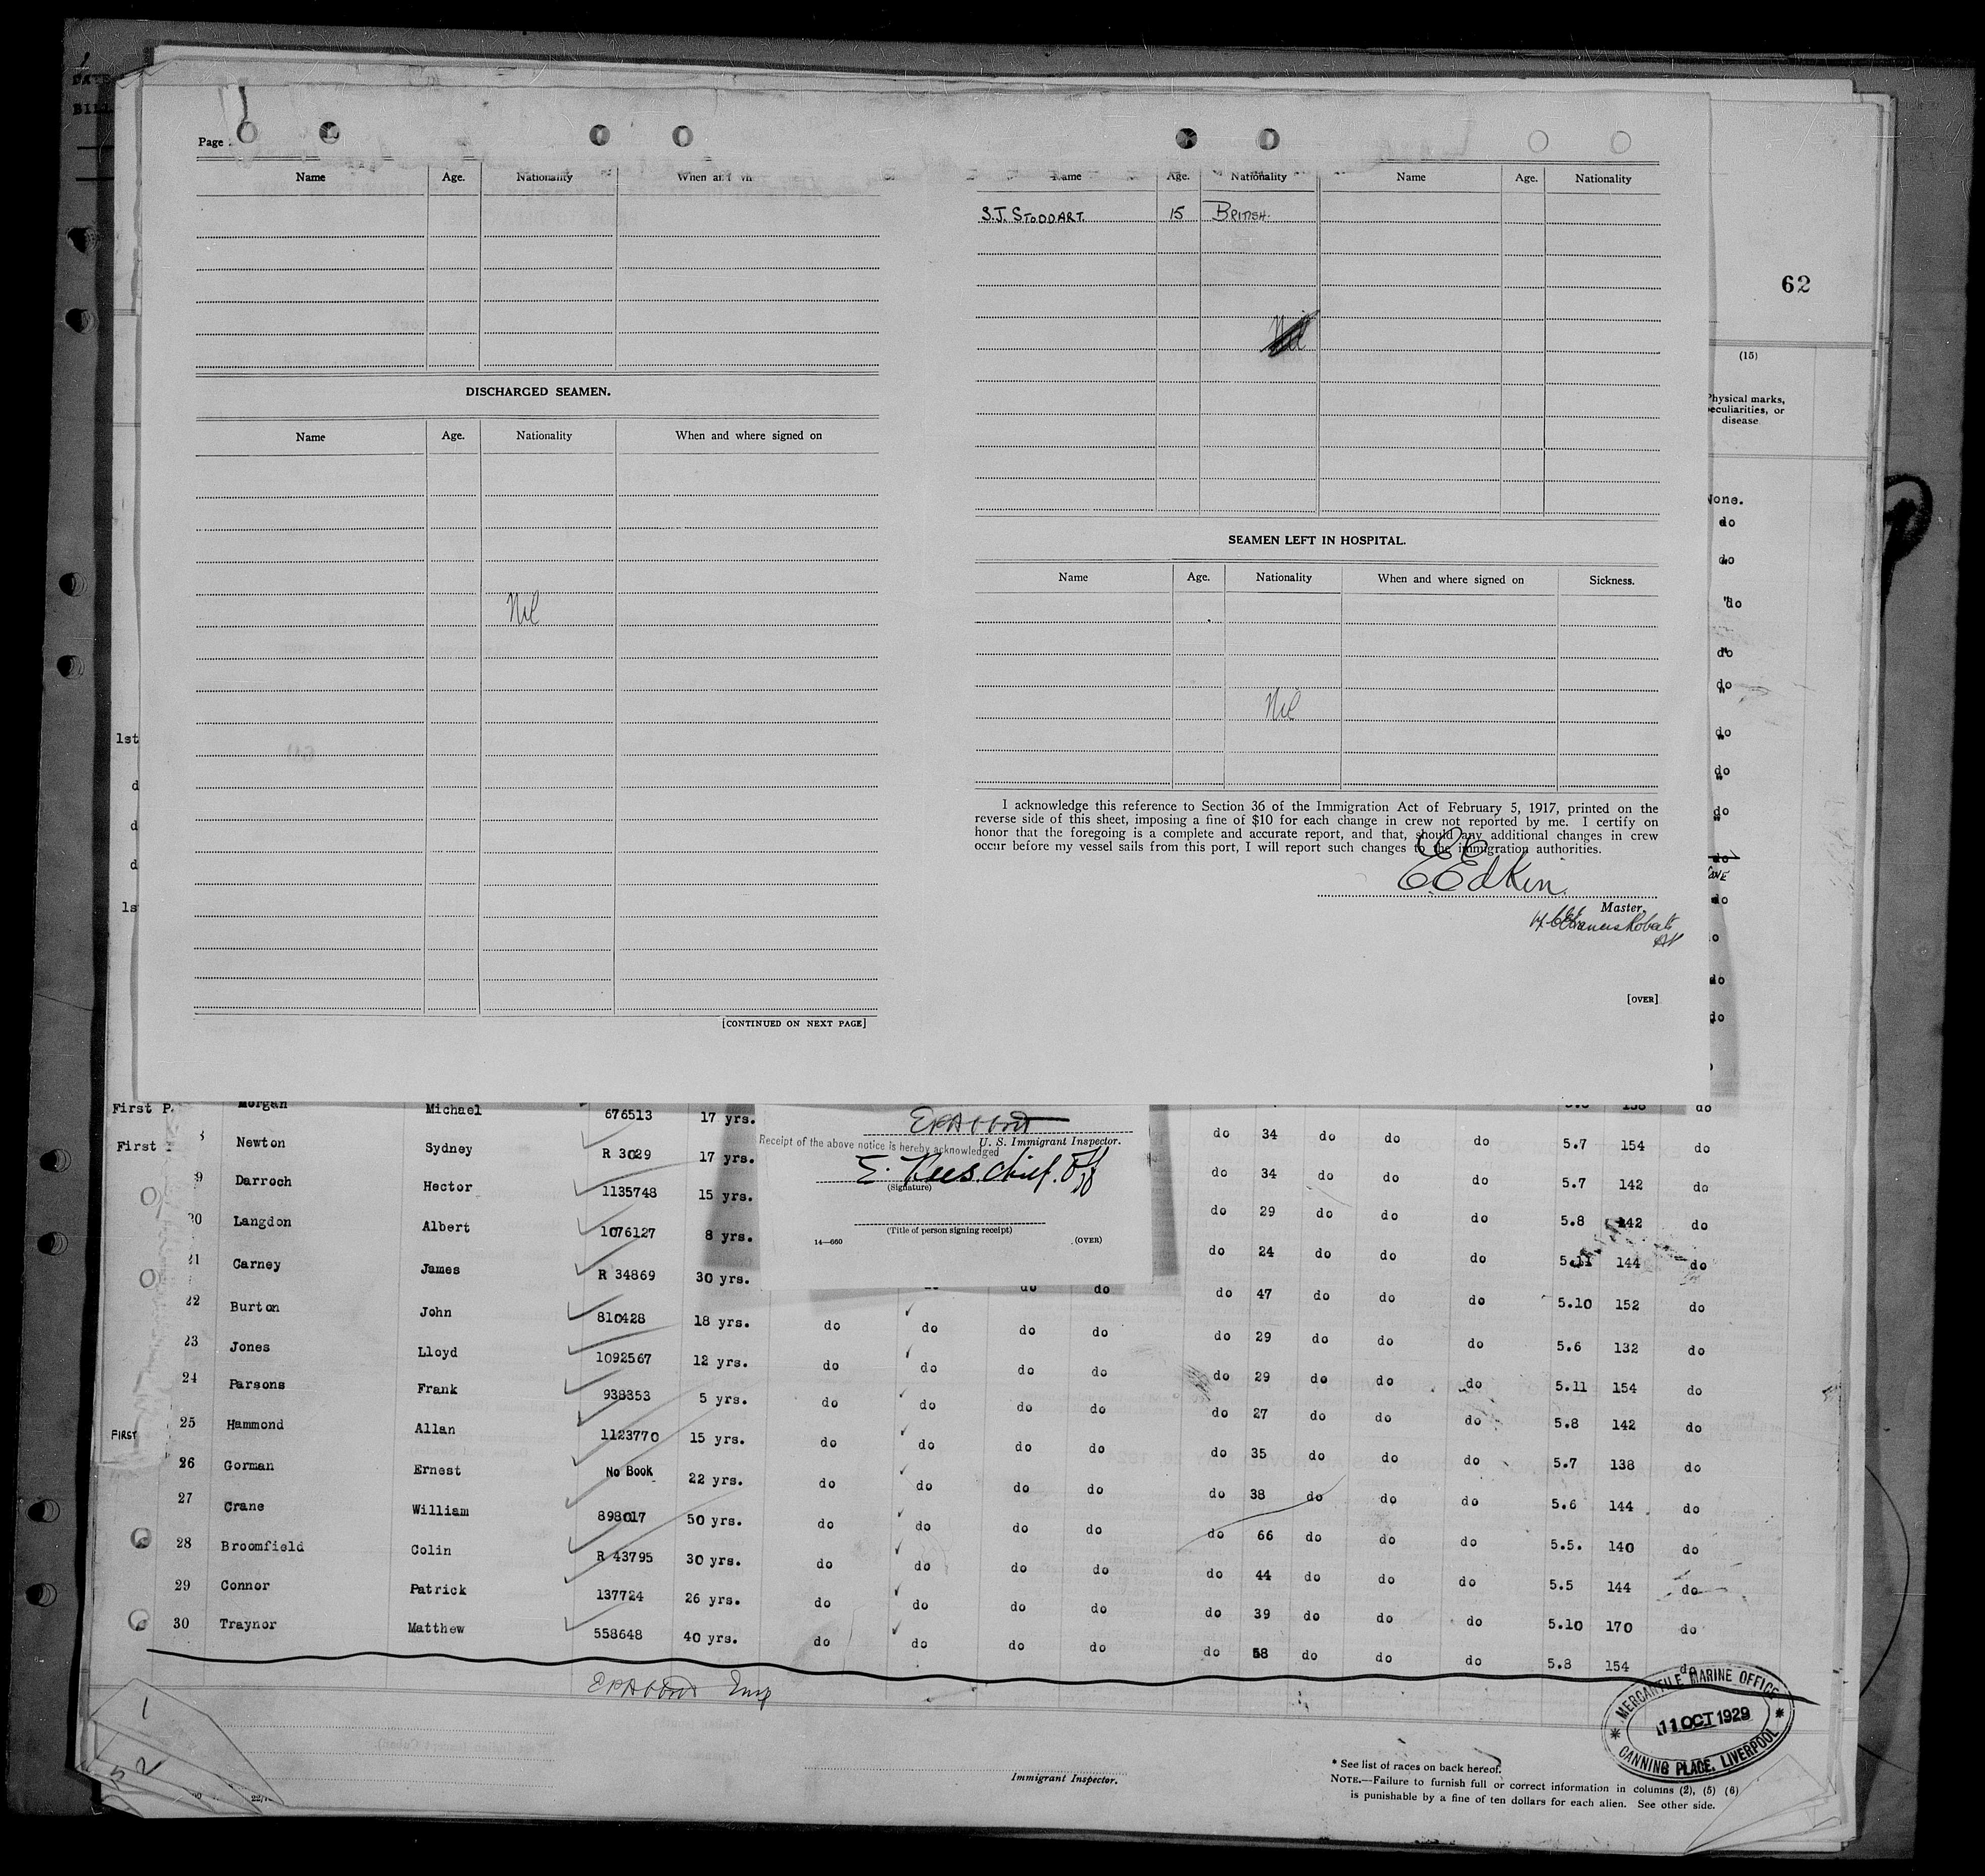 DATE
BILL
Page
Name Age. Nationality When and wh
Name Age. Nationality Name Age. Nationality
S.J. STODDART. 15 BRITISH.
Nil
62
(15)
Physical marks,
peculiarities, or
disease
DISCHARGED SEAMEN.
Name Age. Nationality When and where signed on
Nil
[CONTINUED ON NEXT PAGE]
SEAMEN LEFT IN HOSPITAL.
Name Age. Nationality When and where signed on Sickness.
Nil
I acknowledge this reference to Section 36 of the Immigration Act of February 5, 1917, printed on the
reverse side of this sheet, imposing a fine of $10 for each change in crew not reported by me. I certify on
honor that the foregoing is a complete and accurate report, and that, should any additional changes in crew
occur before my vessel sails from this port, I will report such changes to the immigration authorities.
E Edkin.
Master.
[OVER]
None.
do
do
do
do
do
do
do
do
do
do
do
do
do
1st
d
d
d
1s
First P. Morgan Michael 676513 17 yrs. do 34 do do do 5.7 154 do
First Newton Sydney R 3029 17 yrs. do 34 do do do 5.7 142 do
9 Darroch Hector 1135748 15 yrs. do 29 do do do 5.8 142 do
20 Langdon Albert 1076127 8 yrs. do 24 do do do 5.11 144 do
21 Carney James R 34869 30 yrs. do do do 47 do do do 5.10 152 do
22 Burton John 810428 18 yrs. do do do do do 29 do do do 5.6 132 do
23 Jones Lloyd 1092567 12 yrs. do do do do do 29 do do do 5.11 154 do
24 Parsons Frank 938353 5 yrs. do do do do do 27 do do do 5.8 142 do
FIRST 25 Hammond Allan 1123770 15 yrs. do do do do do 35 do do do 5.7 138 do
26 Gorman Ernest No Book 22 yrs. do do do do do 38 do do do 5.6 144 do
27 Crane William 898017 50 yrs. do do do do do 66 do do do 5.5. 140 do
28 Broomfield Colin R 43795 30 yrs. do do do do do 44 do do do 5.5 144 do
29 Connor Patrick 137724 26 yrs. do do do do do 39 do do do 5.10 170 do
30 Traynor Matthew 558648 40 yrs. do do do do do 58 do do do 5.8 154 do
U. S. Immigrant Inspector.
Receipt of the above notice is hereby acknowledged
E. Rees. Chief. Off
(Signature)
(Title of person signing receipt)
14—660 (OVER)
Insp
Immigrant Inspector.
1
2
MERCANTILE MARINE OFFICE
11 OCT 1929
CANNING PLACE, LIVERPOOL
* See list of races on back hereof.
NOTE.—Failure to furnish full or correct information in columns (2), (5) (6)
is punishable by a fine of ten dollars for each alien. See other side.